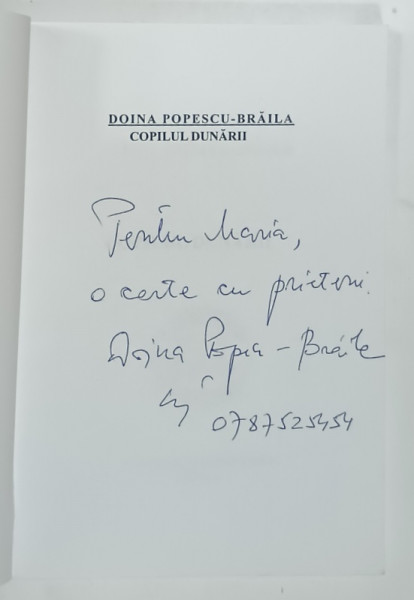 DOINA POPESCU-BRĂILA
COPILUL DUNĂRII
Pentru Maria,
o carte cu prieteni.
Doina Popescu-Brăila
0787525454